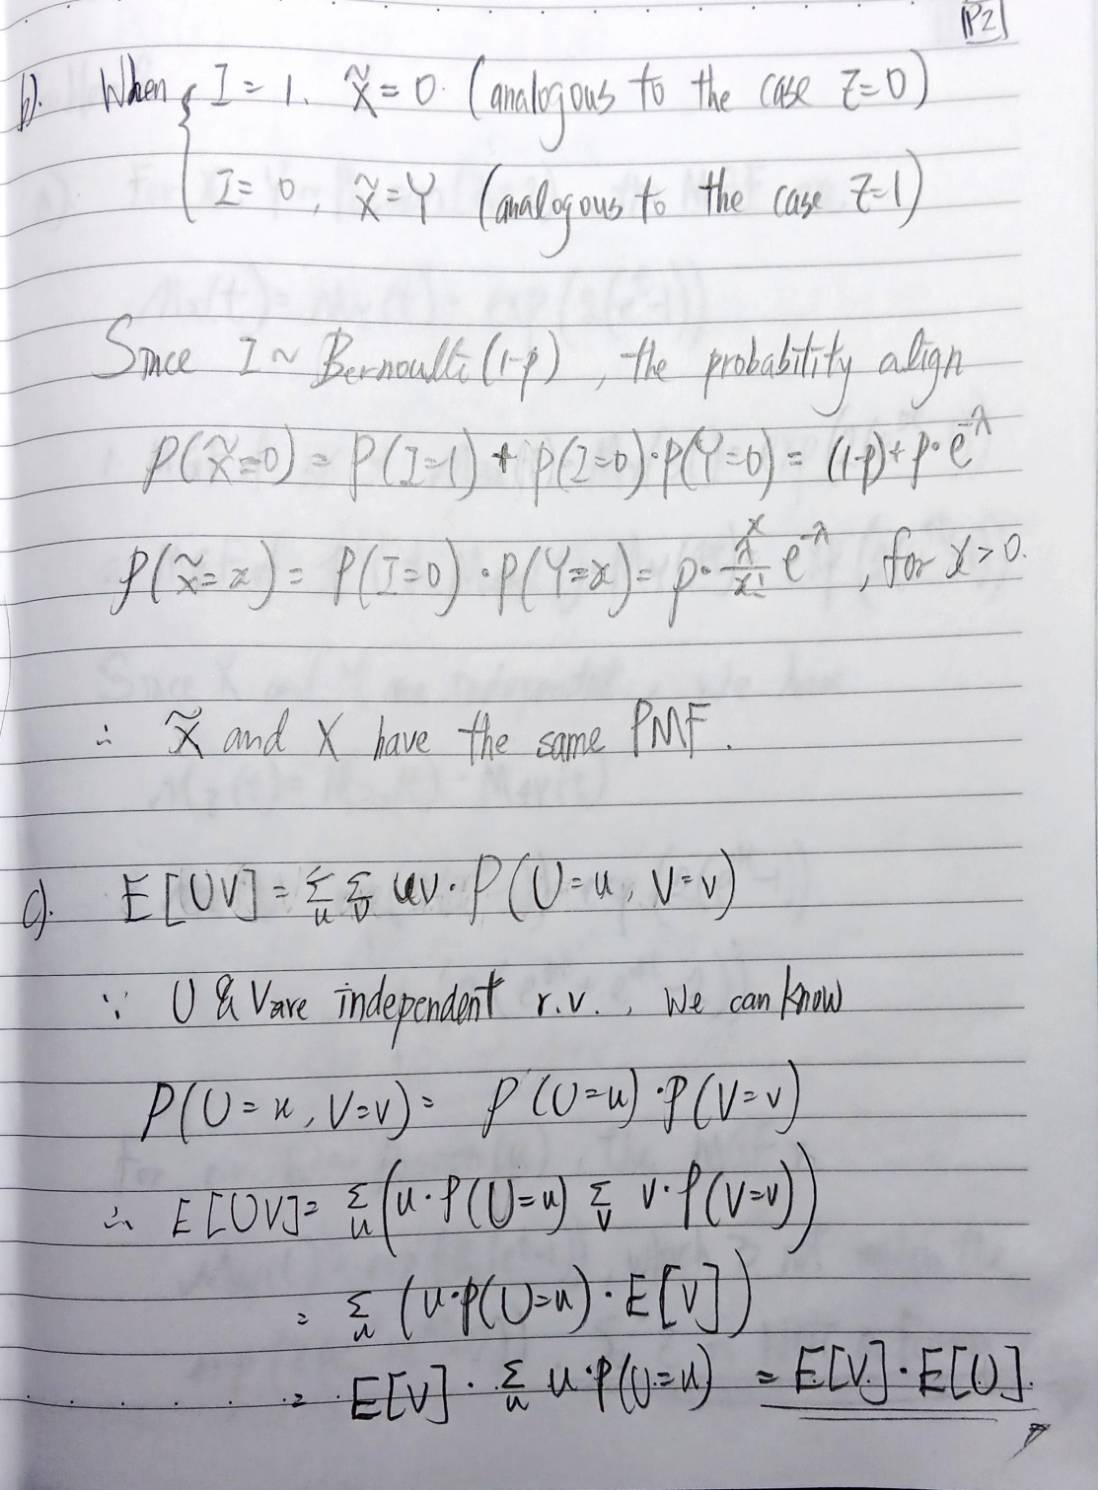 P2
b). When { I = 1, X̃ = 0. (analogous to the case Z=0)
I = 0, X̃ = Y (analogous to the case Z=1)
Since I ~ Bernoulli (1-p), the probability align
P(X̃=0) = P(I=1) + P(I=0)·P(Y=0) = (1-p) + p·e^{-λ}
P(X̃=x) = P(I=0)·P(Y=x) = p·\frac{λ^x}{x!} e^{-λ}, for x>0.
∴ X̃ and X have the same PMF.
c). E[UV] = Σ_u Σ_v uv·P(U=u, V=v)
∵ U & V are independent r.v., We can know
P(U=u, V=v) = P(U=u)·P(V=v)
∴ E[UV] = Σ_u (u·P(U=u) Σ_v v·P(V=v))
= Σ_u (u·P(U=u)·E[V])
= E[V]·Σ_u u·P(U=u) = E[V]·E[U].